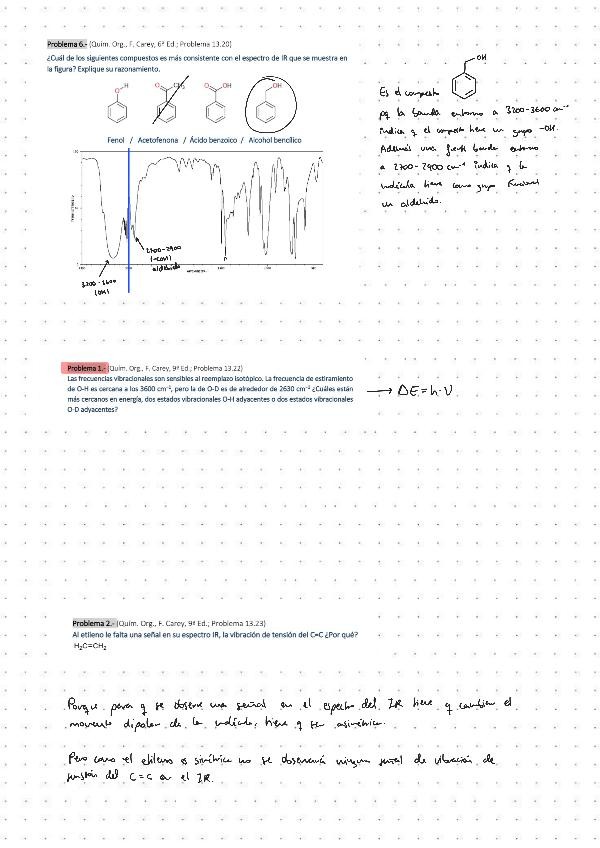 Problema 6.- (Quim. Org., F, Carey, 6ª Ed.; Problema 13.20)
¿Cuál de los siguientes compuestos es más consistente con el espectro de IR que se muestra en
la figura? Explique su razonamiento.
O H
O CH₃
O OH
OH
Fenol / Acetofenona / Ácido benzoico / Alcohol bencílico
2700-2900
(-COH)
aldehído
3200-3600
(OH)
OH
Es el compuesto
pq la banda entorno a 3200-3600 cm⁻¹
indica q el compuesto tiene un grupo -OH.
Además una fuerte banda entorno
a 2700-2900 cm⁻¹ indica q la
molécula tiene como grupo funcional
un aldehído.
Problema 1.- (Quim. Org., F. Carey, 9ª Ed.; Problema 13.22)
Las frecuencias vibracionales son sensibles al reemplazo isotópico. La frecuencia de estiramiento
de O-H es cercana a los 3600 cm⁻¹, pero la de O-D es de alrededor de 2630 cm⁻¹ ¿Cuáles están
más cercanos en energía, dos estados vibracionales O-H adyacentes o dos estados vibracionales
O-D adyacentes?
→ ΔE = h·ν
Problema 2.- (Quim. Org., F. Carey, 9ª Ed.; Problema 13.23)
Al etileno le falta una señal en su espectro IR, la vibración de tensión del C=C ¿Por qué?
H₂C=CH₂
Porque para q se observe una señal en el espectro del IR tiene q cambiar el
momento dipolar de la molécula, tiene q ser asimétrica.
Pero como el etileno es simétrico no se observará ninguna señal de vibración de
tensión del C=C en el IR.